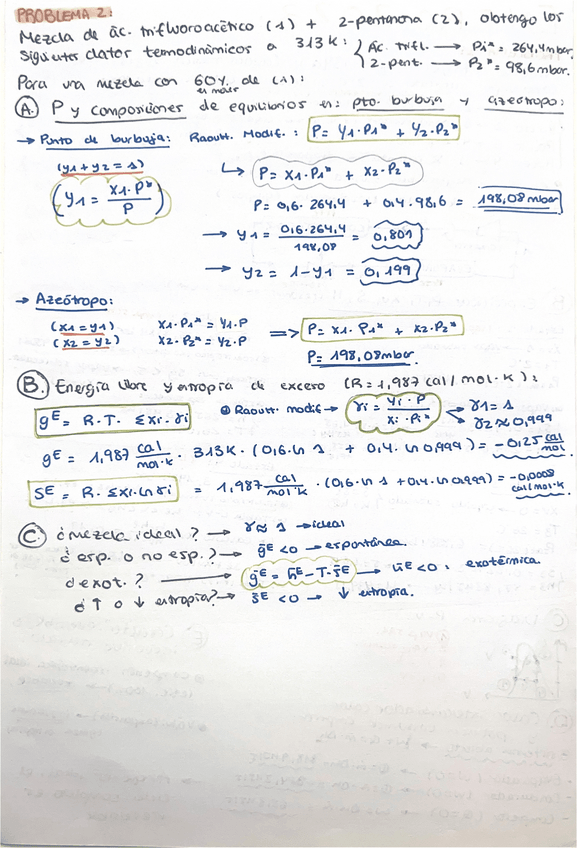 PROBLEMA 2:
Mezcla de ác. trifluoroacético (1) + 2-pentanona (2), obtengo los
siguientes datos termodinámicos a 313K: { Ác. trifl. → P1* = 264,4 mbar.
2-pent. → P2* = 98,6 mbar.
Para una mezcla con 60% de (1):
en molar
A. P y composiciones de equilibrios en: pto. burbuja y azeótropo:
→ Punto de burbuja: Raoult. Modif.: P = γ1·P1* + γ2·P2*
(y1 + y2 = 1)
(y1 = x1·P* / P)
↳ P = x1·P1* + x2·P2*
P = 0,6·264,4 + 0,4·98,6 = 198,08 mbar
→ y1 = 0,6·264,4 / 198,08 = 0,801
→ y2 = 1 - y1 = 0,199
→ Azeótropo:
(x1 = y1) x1·P1* = y1·P
(x2 = y2) x2·P2* = y2·P
⇒ P = x1·P1* + x2·P2*
P = 198,08 mbar.
B. Energía libre y entropía de exceso (R = 1,987 cal/mol·K):
gE = R·T· Σxi·γi
Raoult. modif → γi = yi·P / xi·Pi* → γ1 = 1
γ2 ≈ 0,999
gE = 1,987 cal/mol·K · 313K · (0,6·ln 1 + 0,4·ln 0,999) = -0,25 cal/mol
SE = R· Σxi·ln γi = 1,987 cal/mol·K · (0,6·ln 1 + 0,4·ln 0,999) = -0,0008 cal/mol·K
C. ¿mezcla ideal? → γ ≈ 1 → ideal
¿esp. o no esp.? → gE < 0 → espontánea.
¿exot.? → gE = hE - T·sE → hE < 0: exotérmica.
¿↑ o ↓ entropía? → sE < 0 → ↓ entropía.